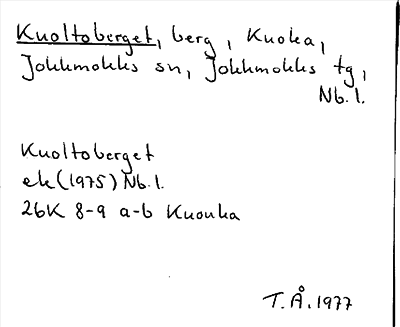 Kuoltoberget, berg, Kuoka,
Jokkmokks sn, Jokkmokks tg,
Nb. l.
Kuoltoberget
ek (1975) Nb. l.
26K 8-9 a-b Kuouka
T. Å. 1977